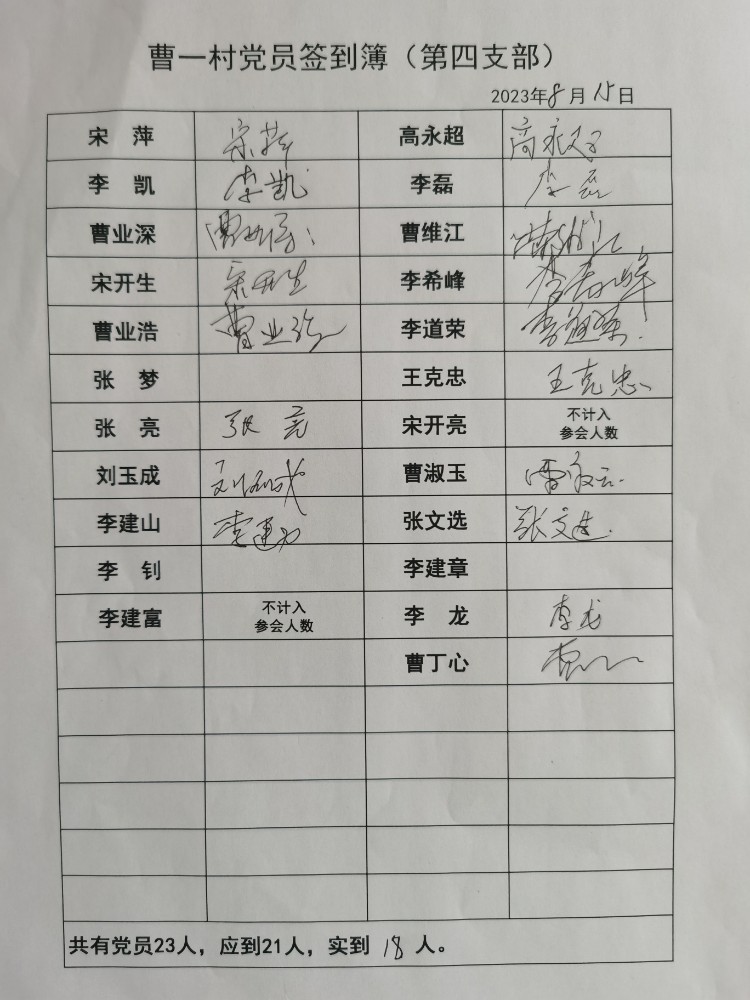 曹一村党员签到簿（第四支部）
2023年8月15日
宋 萍 宋萍 高永超 高永超
李 凯 李凯 李磊 李磊
曹业深 曹业深 曹维江 曹维江
宋开生 宋开生 李希峰 李希峰
曹业浩 曹业浩 李道荣 李道荣
张 梦 王克忠 王克忠
张 亮 张亮 宋开亮 不计入
参会人数
刘玉成 刘玉成 曹淑玉 曹淑玉
李建山 李建山 张文选 张文选
李 钊 李建章
李建富 不计入
参会人数 李 龙 李龙
曹丁心 曹
共有党员23人，应到21人，实到 18 人。